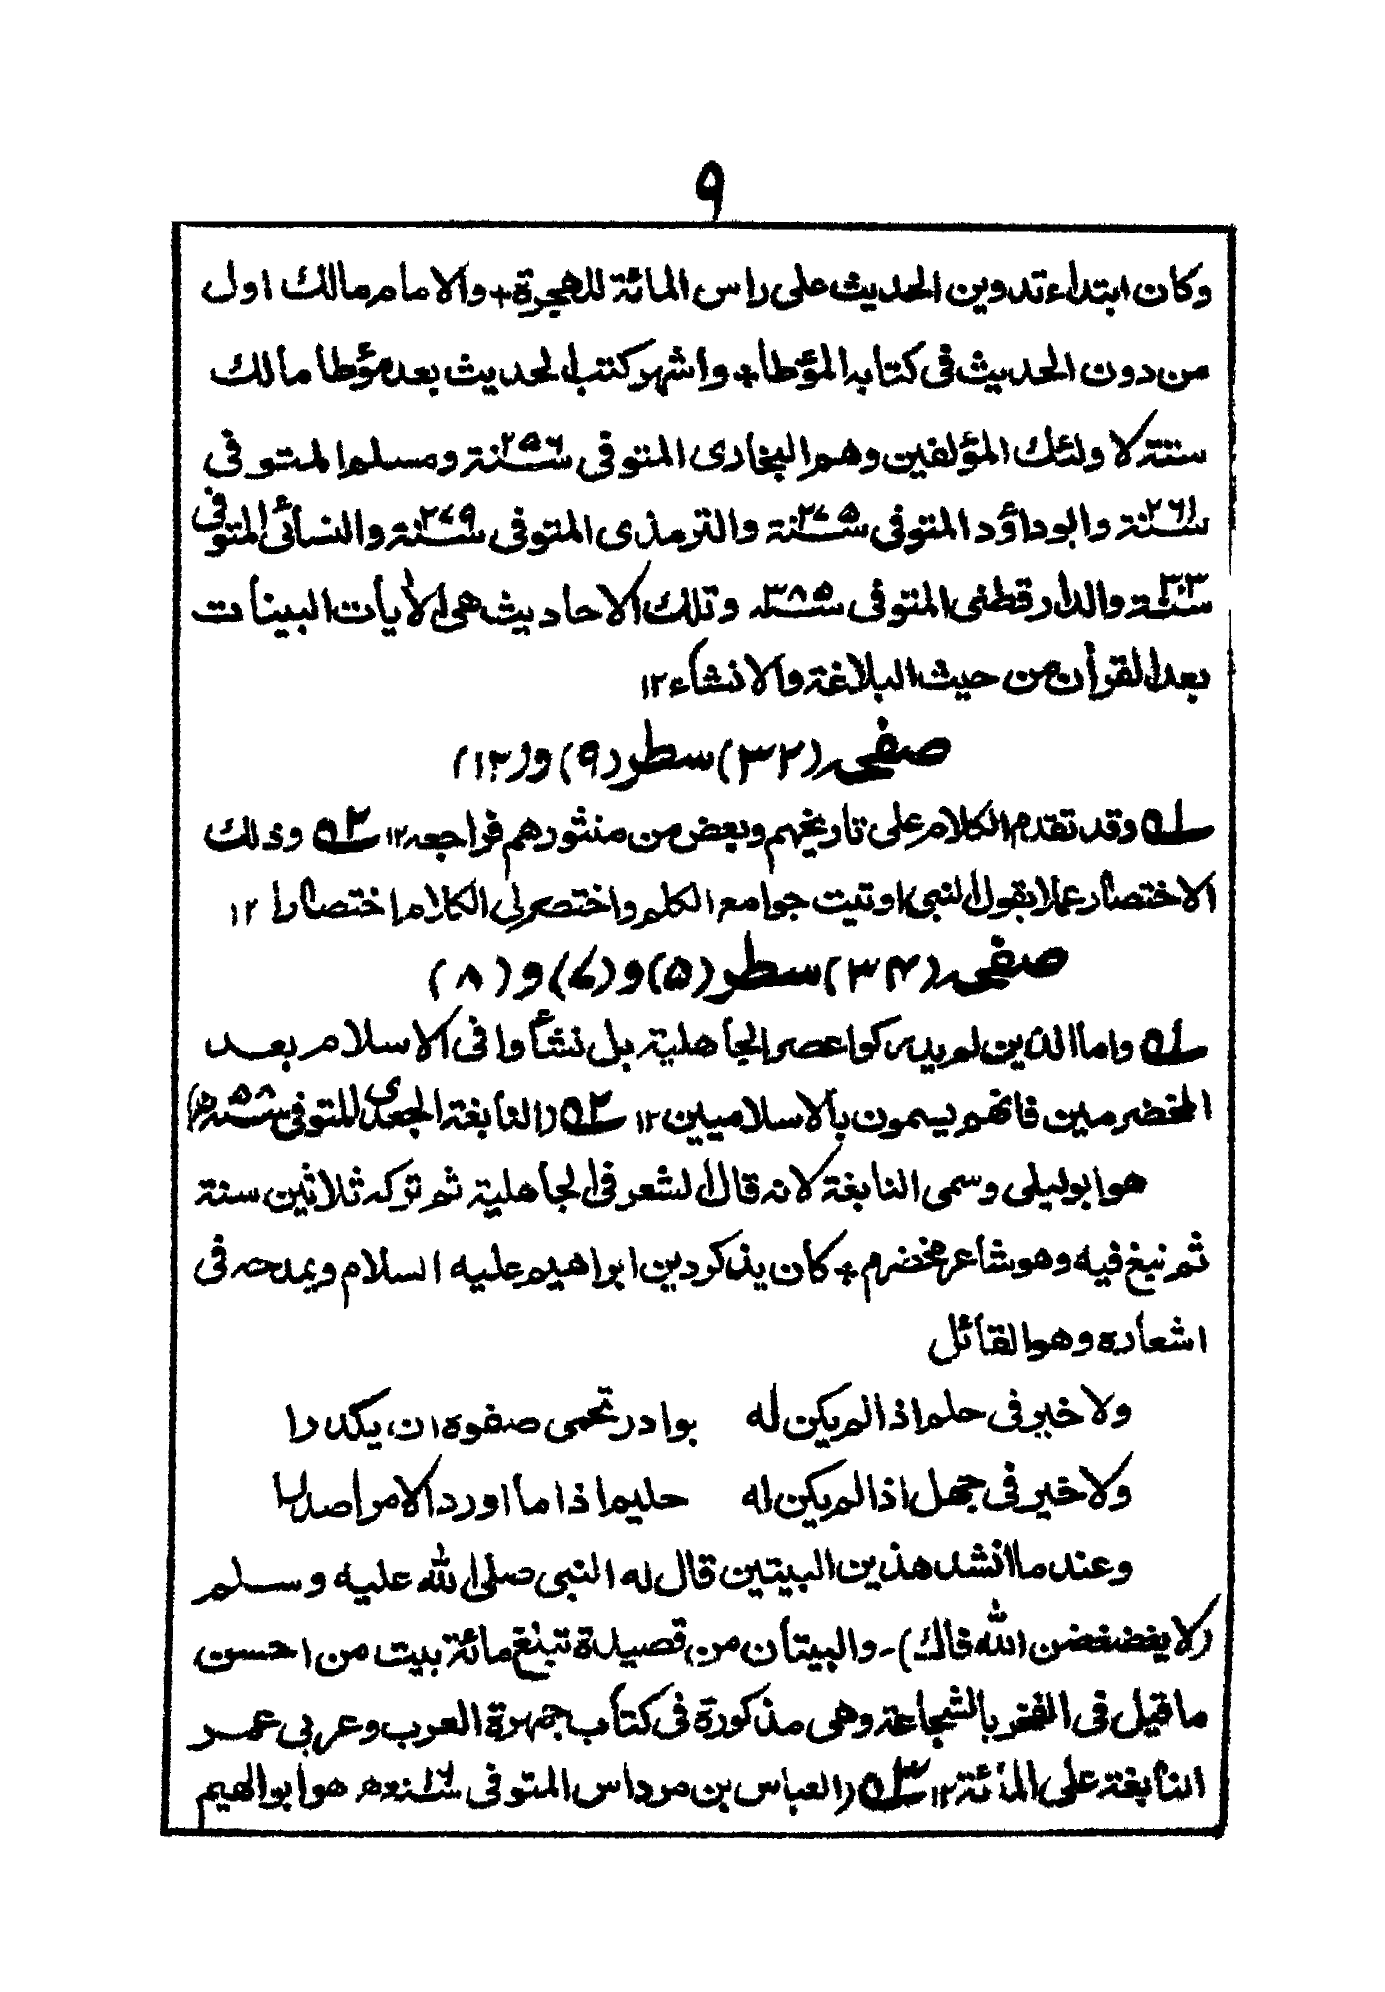 ٩
وكان ابتداء تدوين الحديث على راس المائة للهجرة+ والامام مالك اول
من دون الحديث فى كتابه المؤطا+ واشهر كتب الحديث بعد مؤطا مالك
ستة لاولئك المؤلفين وهم البخارى المتوفى سنة ٢٥٦ ومسلم المتوفى
سنة ٢٦١ وابوداؤد المتوفى سنة ٢٧٥ والترمذى المتوفى سنة ٢٧٩ والنسائى المتوفى
سنة ٣٠٣ والدارقطنى المتوفى سنة ٣٨٥ وتلك الاحاديث هى الأيات البينات
بعد القرأن من حيث البلاغة والانشاء ١٢
صفحہ (٣٢) سطر (٩) و(١٢)
لـ١ـه وقد تقدم الكلام على تاريخهم وبعض من منثورهم فراجعه ١٢ لـ٢ـه وذلك
الاختصار عملا بقول النبى اوتيت جوامع الكلم واختصر لى الكلام اختصارا ١٢
صفحہ (٣٤) سطر (٥) و(٧) و(٨)
لـ١ـه واما الذين لم يدركوا عصر الجاهلية بل نشأوا فى الاسلام بعد
المخضرمين فانهم يسمون بالاسلاميين ١٢ لـ٢ـه (النابغة الجعدى المتوفى سنة ٥٨ه)
هو ابو ليلى وسمى النابغة لانه قال الشعر فى الجاهلية ثم تركه ثلاثين سنة
ثم نبغ فيه وهو شاعر مخضرم+ كان يذكر دين ابراهيم عليه السلام ويمدحه فى
اشعاره وهو القائل
ولا خير فى حلم اذا لم يكن له بوادر تحمى صفوه ان يكدرا
ولا خير فى جهل اذا لم يكن له حليم اذا ما اورد الامر اصدرا
وعند ما انشد هذين البيتين قال له النبى صلى الله عليه وسلم
(لا يفضفض الله فاك)- والبيتان من قصيدة تبلغ مائة بيت من احسن
ما قيل فى الفخر بالشجاعة وهى مذكورة فى كتاب جمهرة العرب وعربى عمر
النابغة على المائة ١٢ لـ٣ـه (العباس بن مرداس المتوفى سنة ١٦ه هو ابو الهيم